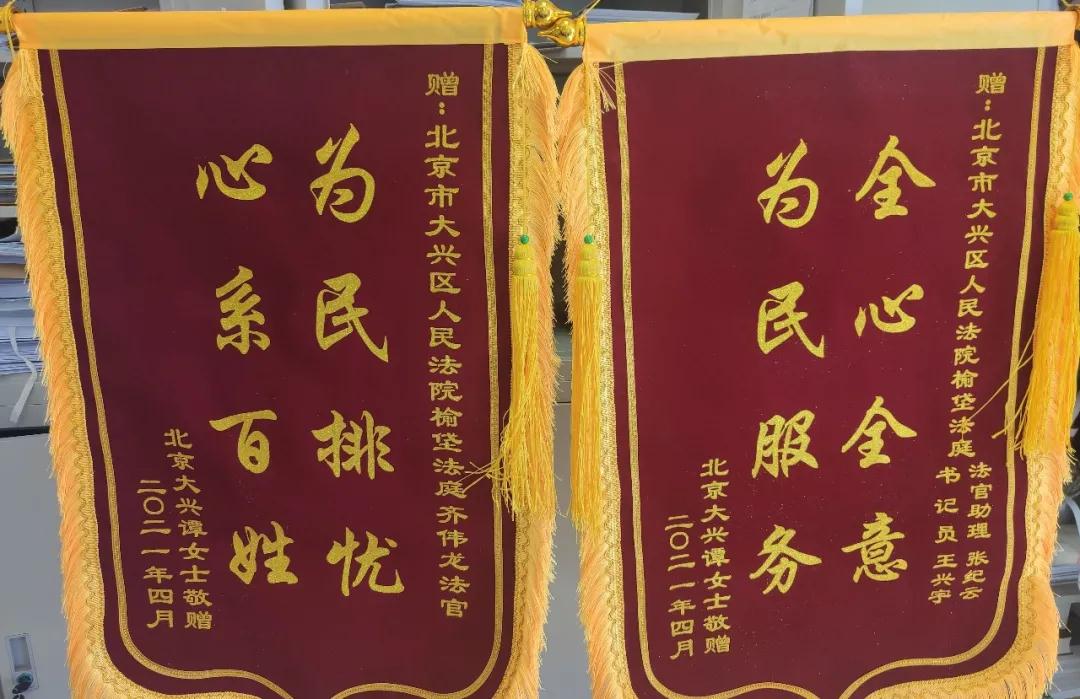 赠：北京市大兴区人民法院榆垡法庭齐伟龙法官
为民排忧
心系百姓
北京大兴谭女士敬赠
二〇二一年四月
赠：北京市大兴区人民法院榆垡法庭
法官助理 张纪云
书记员 王兴宇
全心全意
为民服务
北京大兴谭女士敬赠
二〇二一年四月